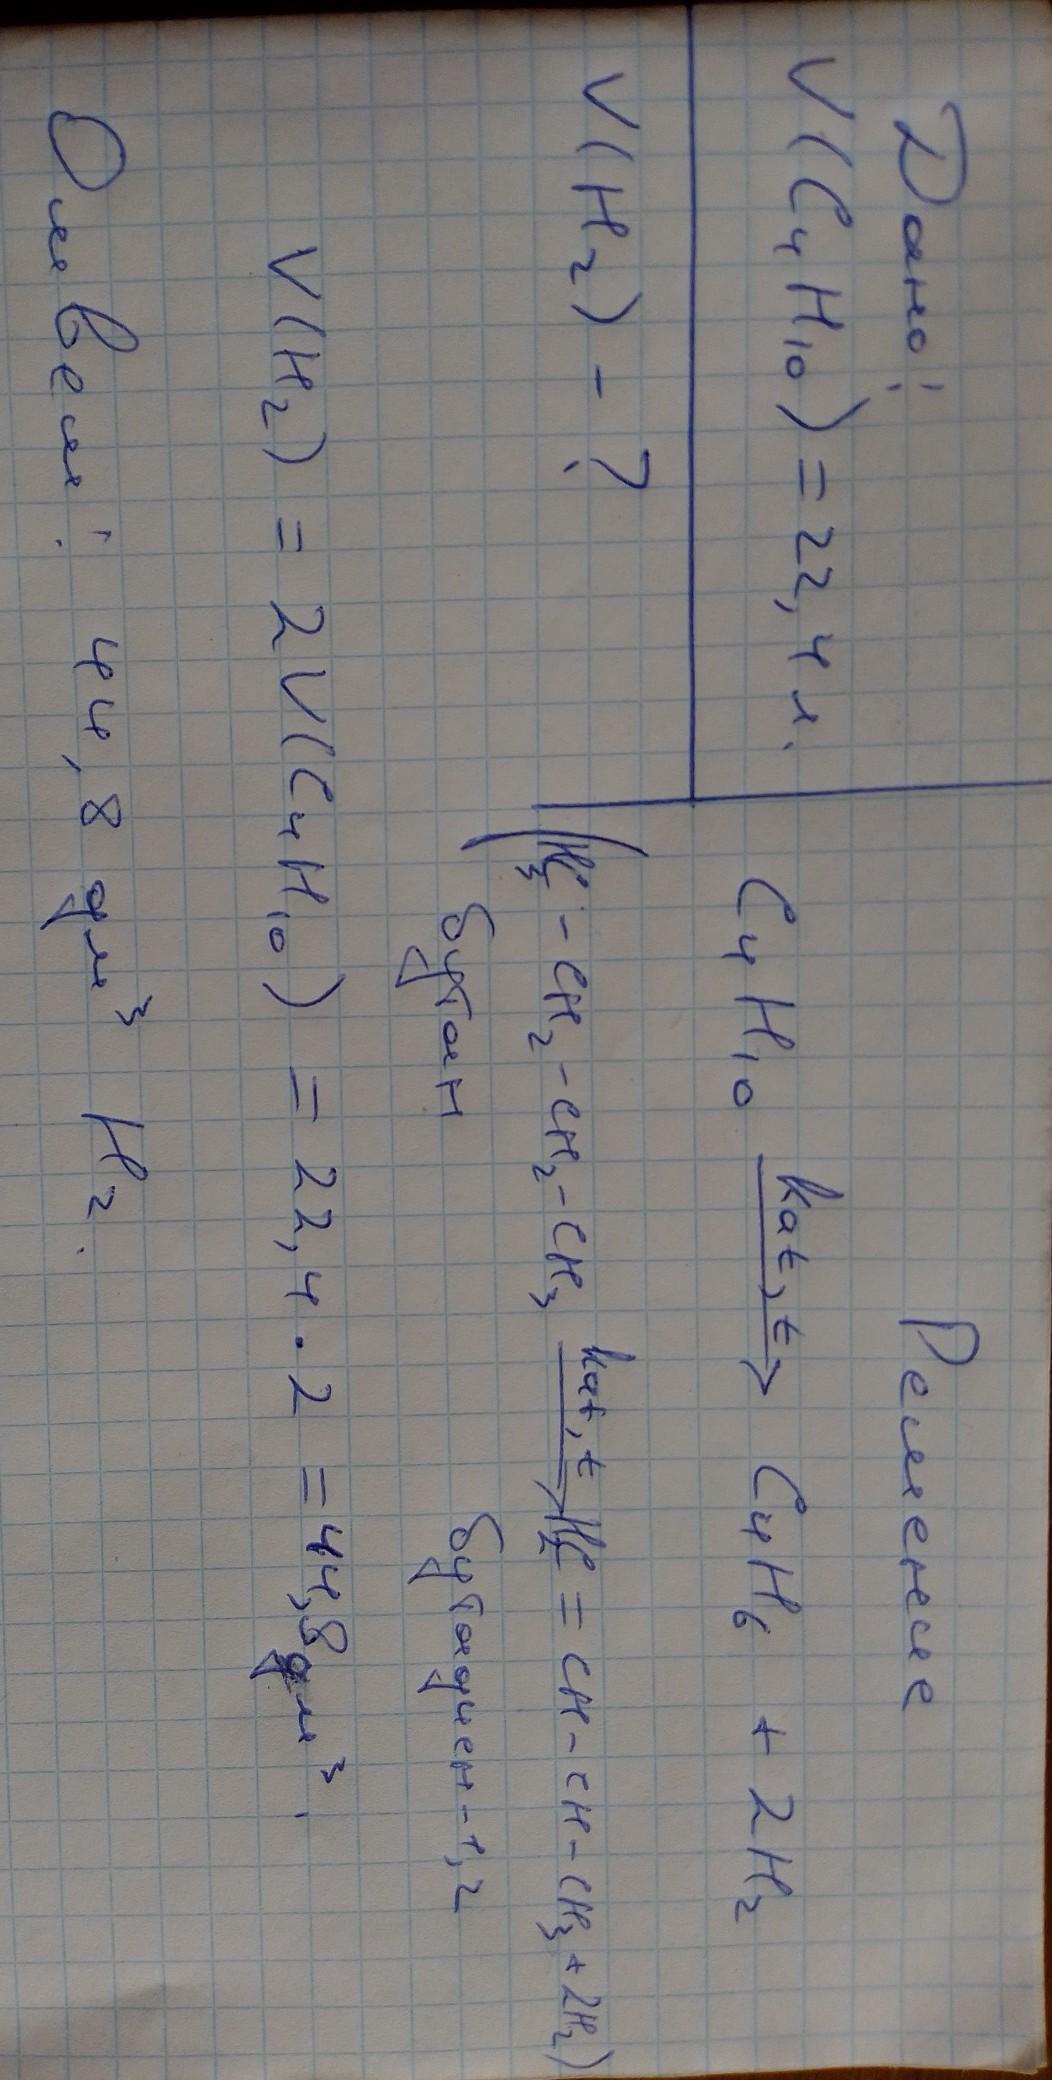 Дано:
V(C₄H₁₀) = 22,4 л.
V(H₂) - ?
Решение
C₄H₁₀ kat, t → C₄H₆ + 2H₂
(H₃C - CH₂ - CH₂ - CH₃ kat, t → H₂C = CH - CH - CH₃ + 2H₂)
бутан бутадиен-1,2
V(H₂) = 2V(C₄H₁₀) = 22,4 · 2 = 44,8 дм³.
Ответ: 44,8 дм³ H₂.